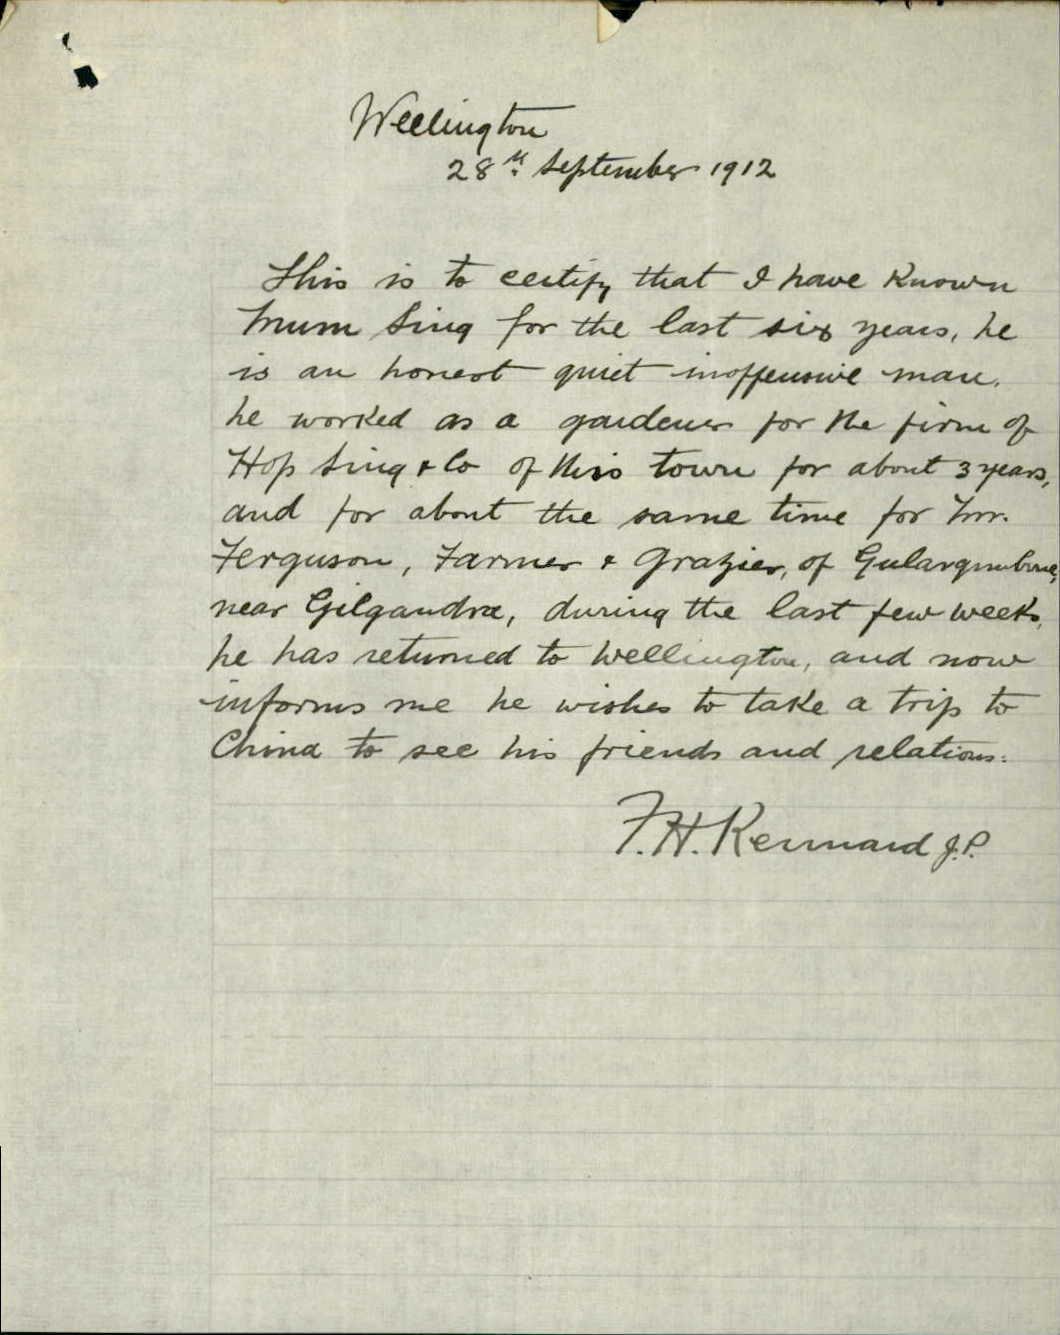 Wellington
28th September 1912
This is to certify that I have known
Mum Sing for the last six years, he
is an honest quiet inoffensive man.
he worked as a gardener for the firm of
Hop Sing & Co of this town for about 3 years,
and for about the same time for Mr.
Ferguson, Farmer & Grazier, of
near Gilgandra, during the last few weeks,
he has returned to Wellington, and now
informs me he wishes to take a trip to
China to see his friends and relations.
F. H. Kennard J.P.